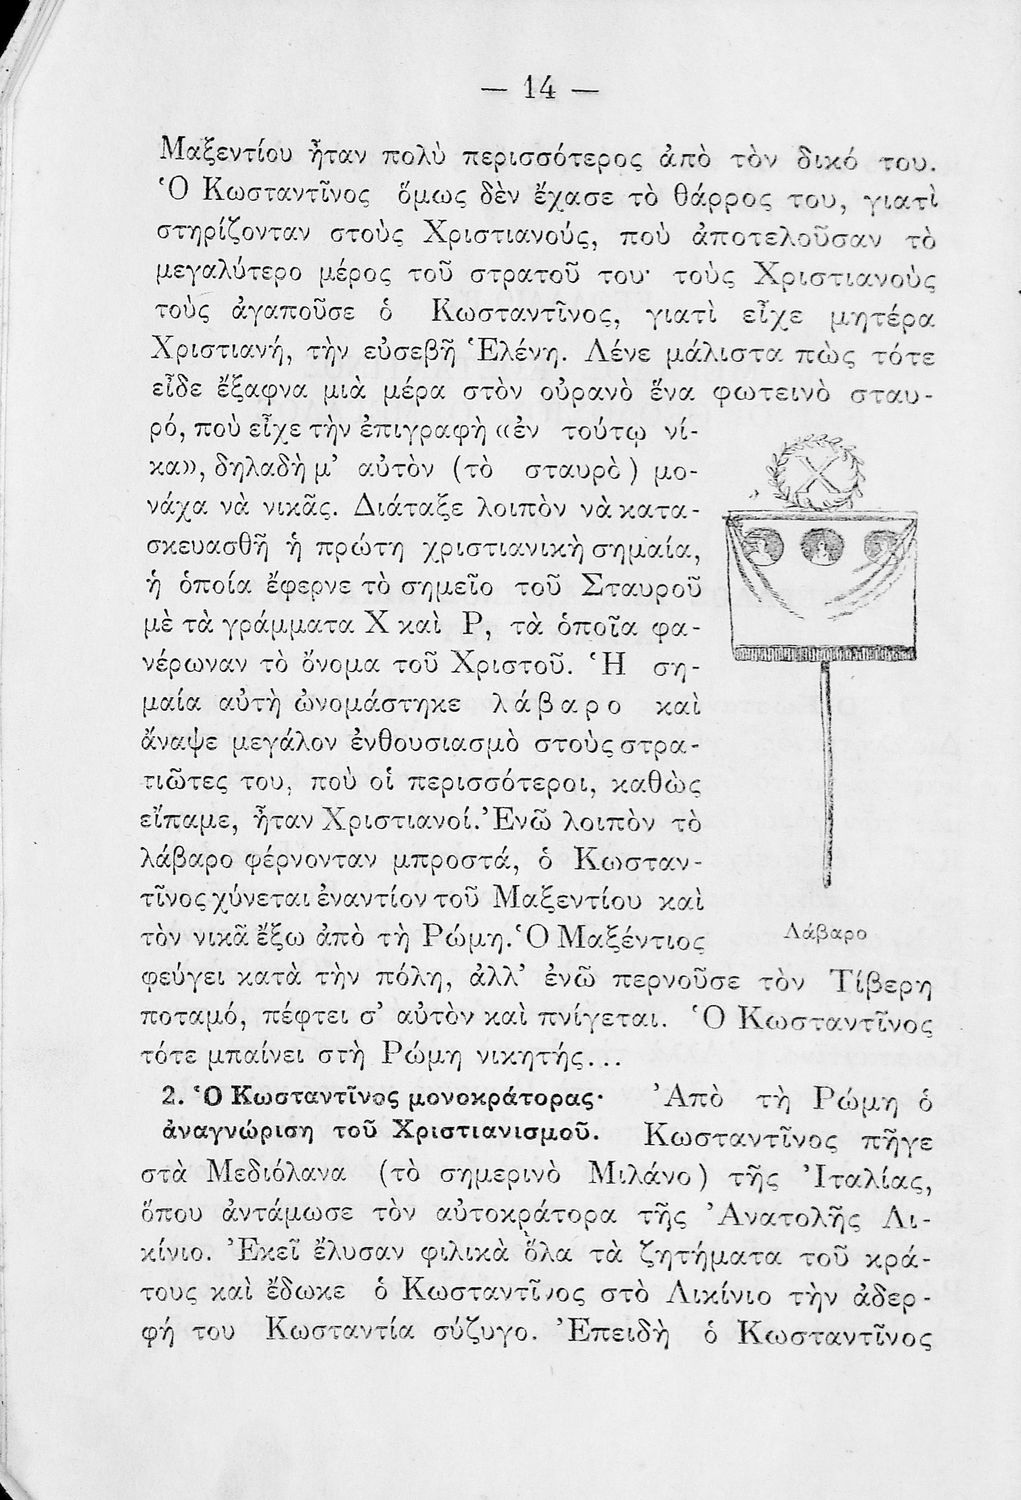 — 14 —
Μαξεντίου ἦταν πολὺ περισσότερος ἀπὸ τὸν δικό του.
Ὁ Κωσταντῖνος ὅμως δὲν ἔχασε τὸ θάρρος του, γιατὶ
στηρίζονταν στοὺς Χριστιανούς, ποὺ ἀποτελοῦσαν τὸ
μεγαλύτερο μέρος τοῦ στρατοῦ του· τοὺς Χριστιανοὺς
τοὺς ἀγαποῦσε ὁ Κωσταντῖνος, γιατὶ εἶχε μητέρα
Χριστιανή, τὴν εὐσεβῆ Ἑλένη. Λένε μάλιστα πὼς τότε
εἶδε ἔξαφνα μιὰ μέρα στὸν οὐρανὸ ἕνα φωτεινὸ σταυ-
ρό, ποὺ εἶχε τὴν ἐπιγραφὴ «ἐν τούτῳ νί-
κα», δηλαδὴ μ’ αὐτὸν (τὸ σταυρὸ) μο-
νάχα νὰ νικᾶς. Διάταξε λοιπὸν νὰ κατα-
σκευασθῆ ἡ πρώτη χριστιανικὴ σημαία,
ἡ ὁποία ἔφερνε τὸ σημεῖο τοῦ Σταυροῦ
μὲ τὰ γράμματα Χ καὶ Ρ, τὰ ὁποῖα φα-
νέρωναν τὸ ὄνομα τοῦ Χριστοῦ. Ἡ ση-
μαία αὐτὴ ὠνομάστηκε λάβαρο καὶ
ἄναψε μεγάλον ἐνθουσιασμὸ στοὺς στρα-
τιῶτες του, ποὺ οἱ περισσότεροι, καθὼς
εἴπαμε, ἦταν Χριστιανοί. Ἐνῶ λοιπὸν τὸ
λάβαρο φέρνονταν μπροστά, ὁ Κωσταν-
τῖνος χύνεται ἐναντίον τοῦ Μαξεντίου καὶ
τὸν νικᾶ ἔξω ἀπὸ τὴ Ρώμη. Ὁ Μαξέντιος
Λάβαρο
φεύγει κατὰ τὴν πόλη, ἀλλ’ ἐνῶ περνοῦσε τὸν Τίβερη
ποταμό, πέφτει σ’ αὐτὸν καὶ πνίγεται. Ὁ Κωσταντῖνος
τότε μπαίνει στὴ Ρώμη νικητής...
2. Ὁ Κωσταντῖνος μονοκράτορας· Ἀπὸ τὴ Ρώμη ὁ
ἀναγνώριση τοῦ Χριστιανισμοῦ. Κωσταντῖνος πῆγε
στὰ Μεδιόλανα (τὸ σημερινὸ Μιλάνο) τῆς Ἰταλίας,
ὅπου ἀντάμωσε τὸν αὐτοκράτορα τῆς Ἀνατολῆς Λι-
κίνιο. Ἐκεῖ ἔλυσαν φιλικὰ ὅλα τὰ ζητήματα τοῦ κρά-
τους καὶ ἔδωκε ὁ Κωσταντῖνος στὸ Λικίνιο τὴν ἀδερ-
φή του Κωσταντία σύζυγο. Ἐπειδὴ ὁ Κωσταντῖνος